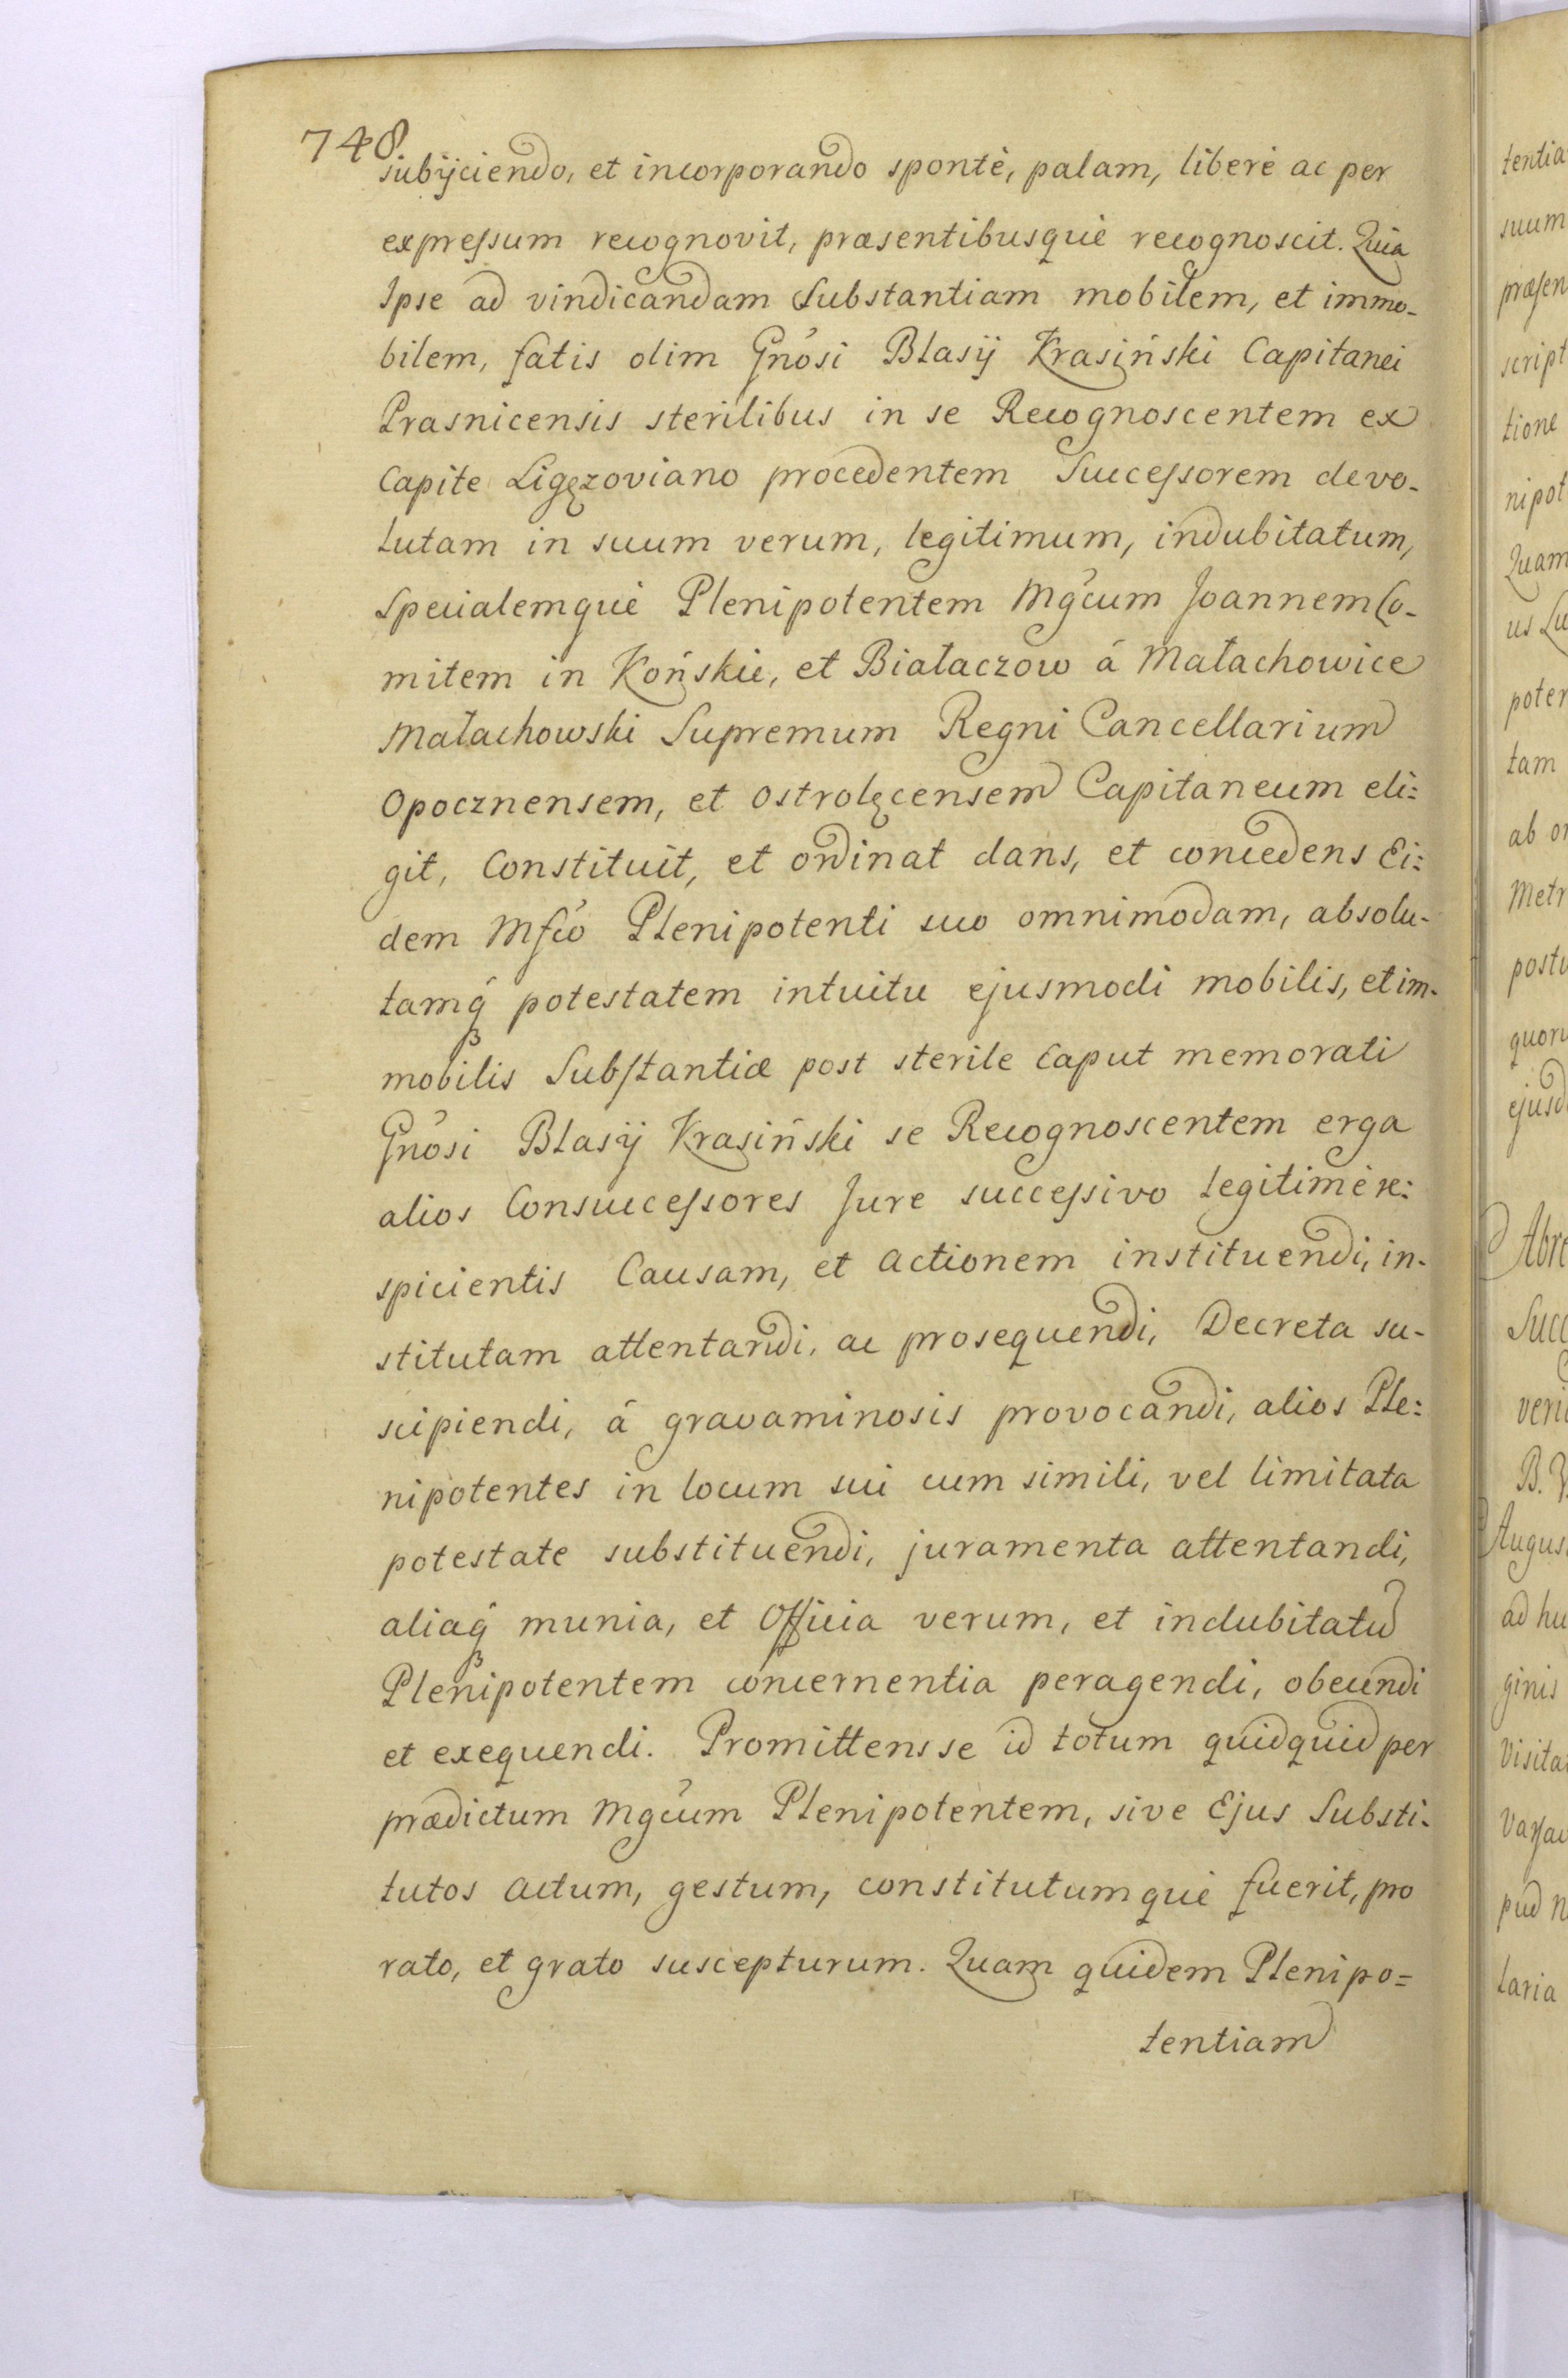 748
subijciendo, et incorporando spontè, palam, liberè ac per
expressum recognovit, præsentibusquè recognoscit. Quia
Ipse ad vindicandam Substantiam mobilem, et immo-
bilem, fatis olim Gnősi Blasij Krasiński Capitanei
Prasnicensis sterilibus in se Recognoscentem ex
Capite Ligęzoviano procedentem Successorem devo-
lutam in suum verum, legitimum, indubitatum,
Specialemquè Plenipotentem Mgcum Joannem Co-
mitem in Końskie, et Białaczow á Małachowice
Małachowski Supremum Regni Cancellarium
Opocznensem, et Ostrolęcensem Capitaneum eli:
git, Constituit, et ordinat dans, et concedens Ei:
dem Mfcó Plenipotenti suo omnimodam, absolu-
tamq́ potestatem intuitu ejusmodi mobilis, et im-
mobilis Substantiæ post sterile Caput memorati
Gnősi Blasij Krasiński se Recognoscentem erga
alios Consuccessores Jure successivo legitimè re:
spicientis Causam, et actionem instituendi, in-
stitutam attentandi, ac prosequendi, Decreta su-
scipiendi, á gravaminosis provocandi, alios Ple:
nipotentes in locum sui cum simili, vel limitata
potestate substituendi, juramenta attentandi,
aliaq́ munia, et Officia verum, et indubitatū
Plenipotentem concernentia peragendi, obeundi
et exequendi. Promittens se id totum quidquid per
prædictum Mgcum Plenipotentem, sive Ejus Substi-
tutos actum, gestum, constitutumquè fuerit, pro
rato, et grato suscepturum. Quam quidem Plenipo=
tentiam
tentia
suum
præsen
script
tione
nipot
Quam
us Lu
poten
tam
ab
Metr
postu
quoru
ejusd
Abre
Succ
veri
B. V.
Augus
ad hu
ginis
Visita
pud
laria